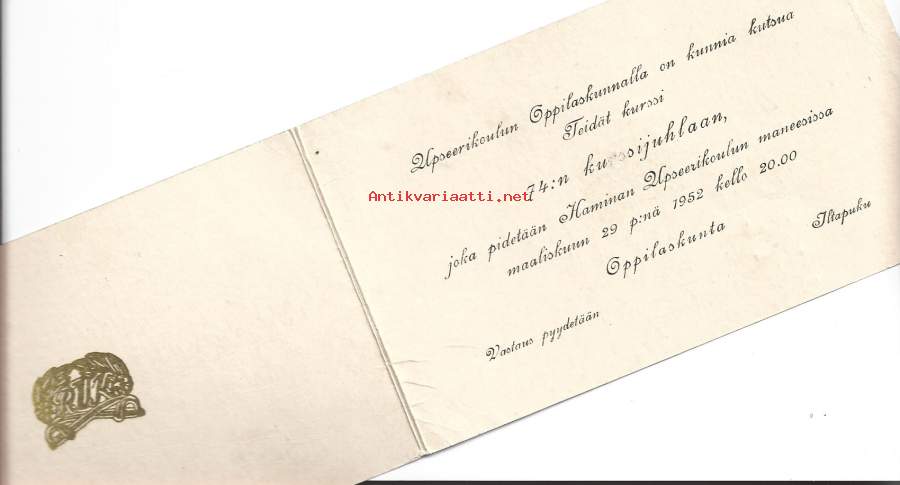 Upseerikoulun Oppilaskunnalla on kunnia kutsua
Teidät kurssi
74:n kurssijuhlaan,
joka pidetään Haminan Upseerikoulun maneesissa
maaliskuun 29 p:nä 1952 kello 20.00
Oppilaskunta
Iltapuku
Vastaus pyydetään
Antikvariaatti.net
RUK